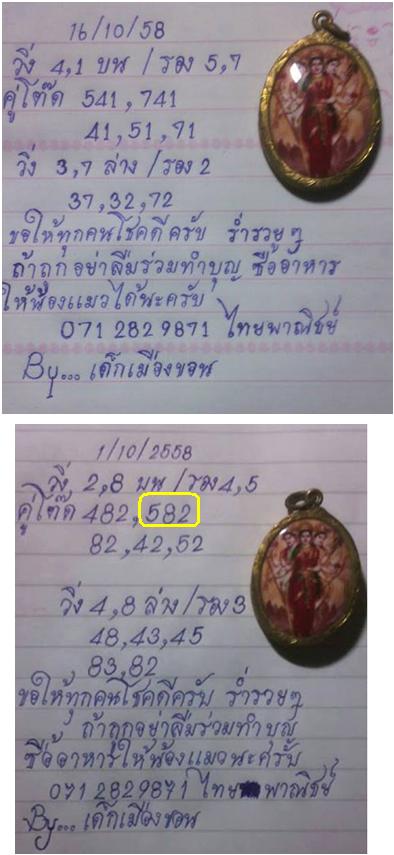 16/10/58
วิ่ง 4,1 บน / รอง 5,7
คู่โต๊ด 541,741
41,51,71
วิ่ง 3,7 ล่าง / รอง 2
37,32,72
ขอให้ทุกคนโชคดีครับ ร่ำรวยๆ
ถ้าถูกอย่าลืมร่วมทำบุญ ซื้ออาหาร
ให้น้องแมวได้นะครับ
071 2829871 ไทยพาณิชย์
By... เด็กเมืองขอน
1/10/2558
วิ่ง 2,8 บน / รอง 4,5
คู่โต๊ด 482,582
82,42,52
วิ่ง 4,8 ล่าง / รอง 3
48,43,45
83,82
ขอให้ทุกคนโชคดีครับ ร่ำรวยๆ
ถ้าถูกอย่าลืมร่วมทำบุญ
ซื้ออาหารให้น้องแมวนะครับ
071 2829871 ไทยพาณิชย์
By... เด็กเมืองขอน